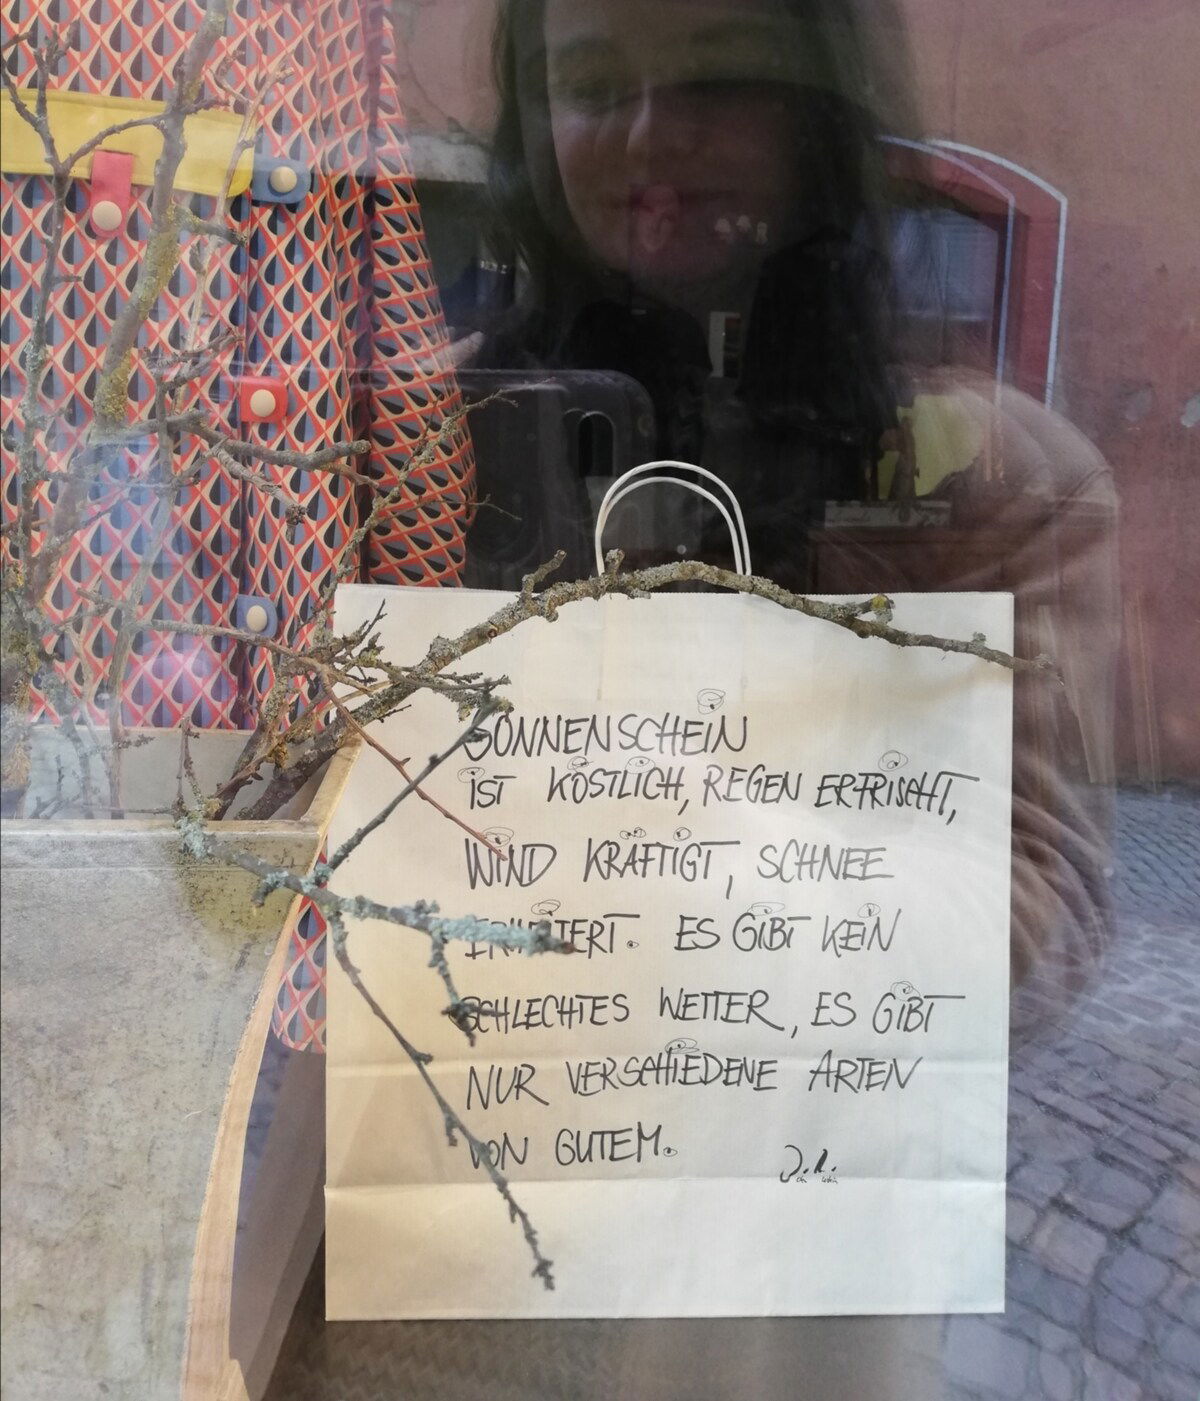 SONNENSCHEIN
IST KÖSTLICH, REGEN ERFRISCHT,
WIND KRÄFTIGT, SCHNEE
ERHEITERT. ES GIBT KEIN
SCHLECHTES WETTER, ES GIBT
NUR VERSCHIEDENE ARTEN
VON GUTEM.
J. R.